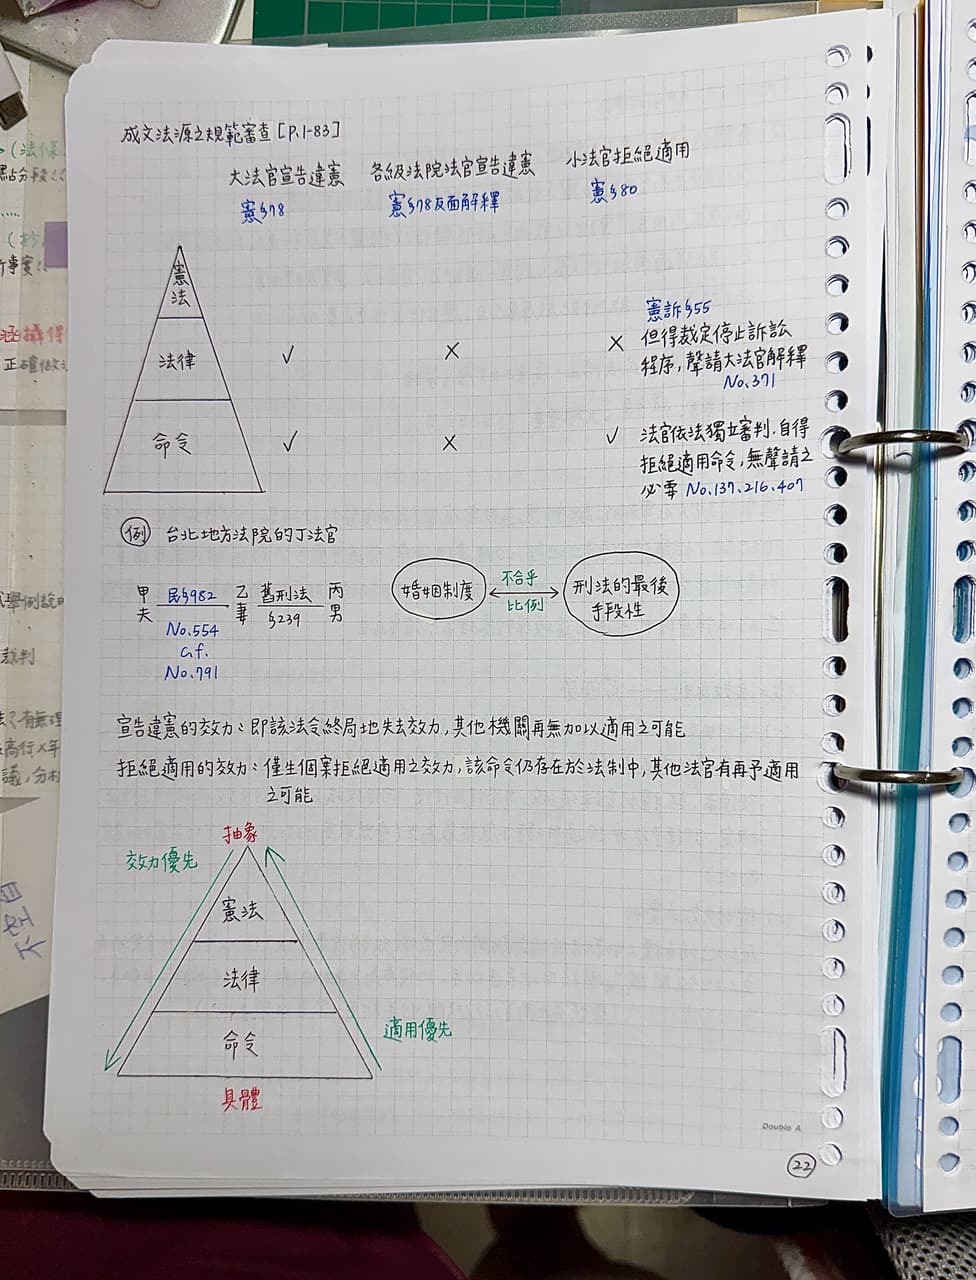 成文法源之規範審查 [P.1-83]
大法官宣告違憲 各級法院法官宣告違憲 小法官拒絕適用
憲§78 憲§78反面解釋 憲§80
憲法
法律 ✓ ✗ ✗
憲訴§55
但得裁定停止訴訟
程序,聲請大法官解釋
No.371
命令 ✓ ✗ ✓
法官依法獨立審判,自得
拒絕適用命令,無聲請之
必要 No.137.216.407
例 台北地方法院的丁法官
甲夫 民§982 乙妻 舊刑法 §239 丙男
No.554
cf.
No.791
婚姻制度 不合乎 比例 刑法的最後
手段性
宣告違憲的效力:即該法令終局地失去效力,其他機關再無加以適用之可能
拒絕適用的效力:僅生個案拒絕適用之效力,該命令仍存在於法制中,其他法官有再予適用
之可能
抽象
效力優先
憲法
法律
適用優先
命令
具體
Double A
22
(法條
裁判
有無理
高行X年